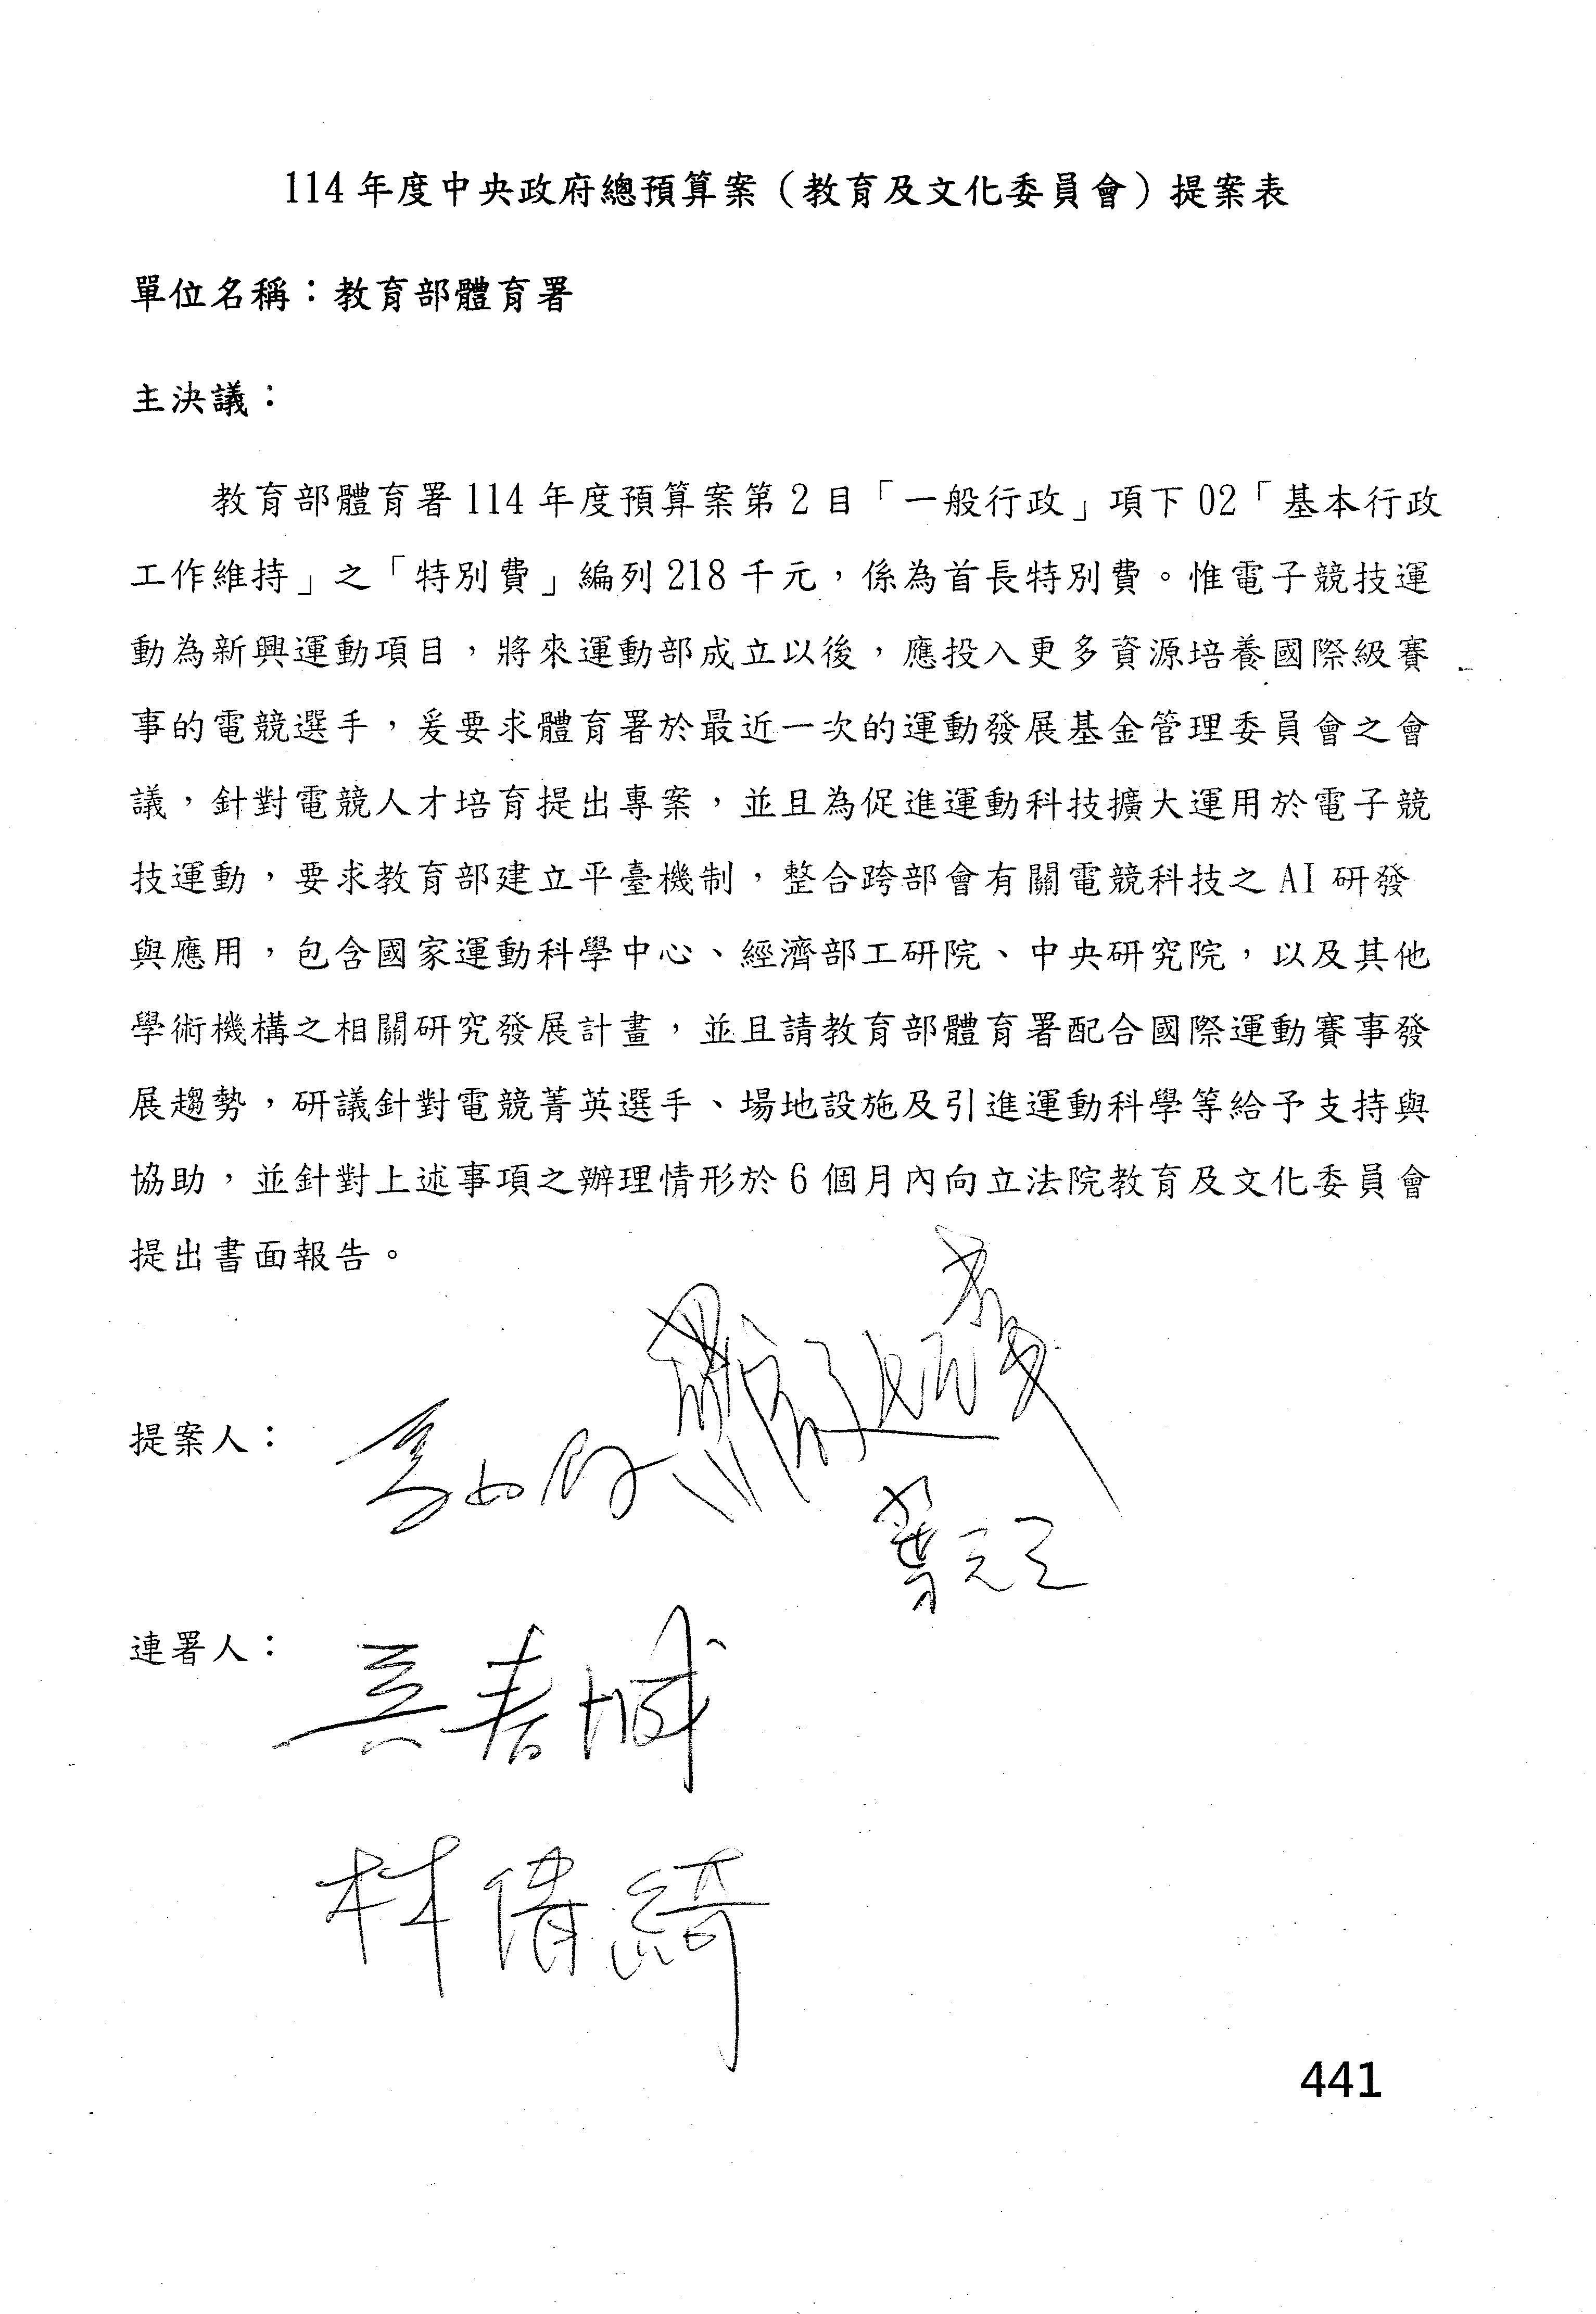 114年度中央政府總預算案（教育及文化委員會）提案表
單位名稱：教育部體育署
主決議：
教育部體育署114年度預算案第2目「一般行政」項下02「基本行政
工作維持」之「特別費」編列218千元，係為首長特別費。惟電子競技運
動為新興運動項目，將來運動部成立以後，應投入更多資源培養國際級賽
事的電競選手，爰要求體育署於最近一次的運動發展基金管理委員會之會
議，針對電競人才培育提出專案，並且為促進運動科技擴大運用於電子競
技運動，要求教育部建立平臺機制，整合跨部會有關電競科技之AI研發
與應用，包含國家運動科學中心、經濟部工研院、中央研究院，以及其他
學術機構之相關研究發展計畫，並且請教育部體育署配合國際運動賽事發
展趨勢，研議針對電競菁英選手、場地設施及引進運動科學等給予支持與
協助，並針對上述事項之辦理情形於6個月內向立法院教育及文化委員會
提出書面報告。
提案人：
葉元之
連署人：
吳春城
林倩綺
441